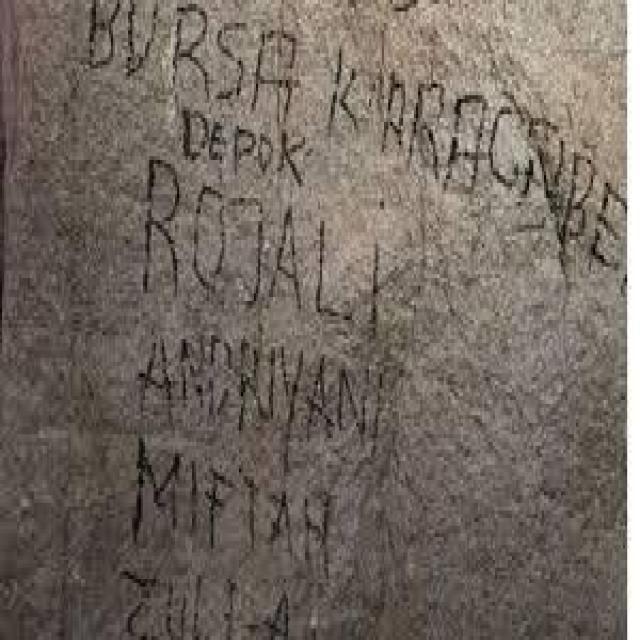 BURSA KARACABE
DEPOK
ROJALi
ANDRIYANI
MIFTAH